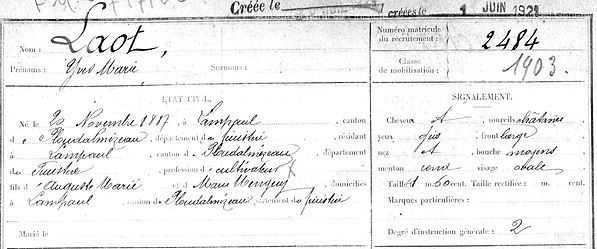 Créée le
créées le 1 JUIN 1921
Nom : Laot,
Prénoms : Yves Marie Surnoms :
Numéro matricule du recrutement : 2484
Classe de mobilisation : 1903.
ÉTAT CIVIL.
Né le 20 Novembre 1887, à Lampaul, canton
d Ploudalmézeau, département du finistère, résidant
à Lampaul, canton d Ploudalmézeau, département
du Finistère, profession de cultivateur
fils d'Auguste Marie et d Marie Menguy, domiciliés
à Lampaul, canton de Ploudalmézeau, département du finistère
Marié le
SIGNALEMENT.
Cheveux sourcils châtains
yeux gris front large
nez bouche moyens
menton rond visage ovale
Taille : 1 m. 60 cent. Taille rectifiée : m. cent.
Marques particulières :
Degré d'instruction générale : 2